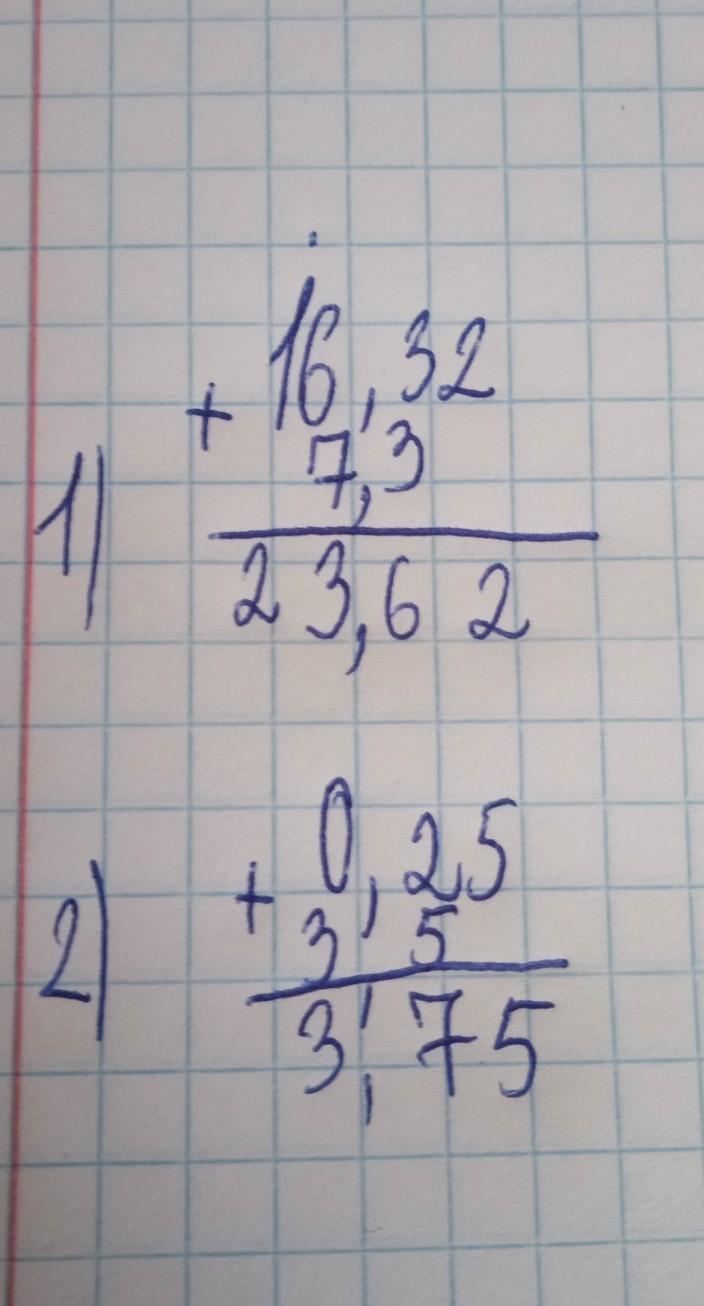 16,32
+
7,3
1)
23,62
0,25
+
3,5
2)
3,75